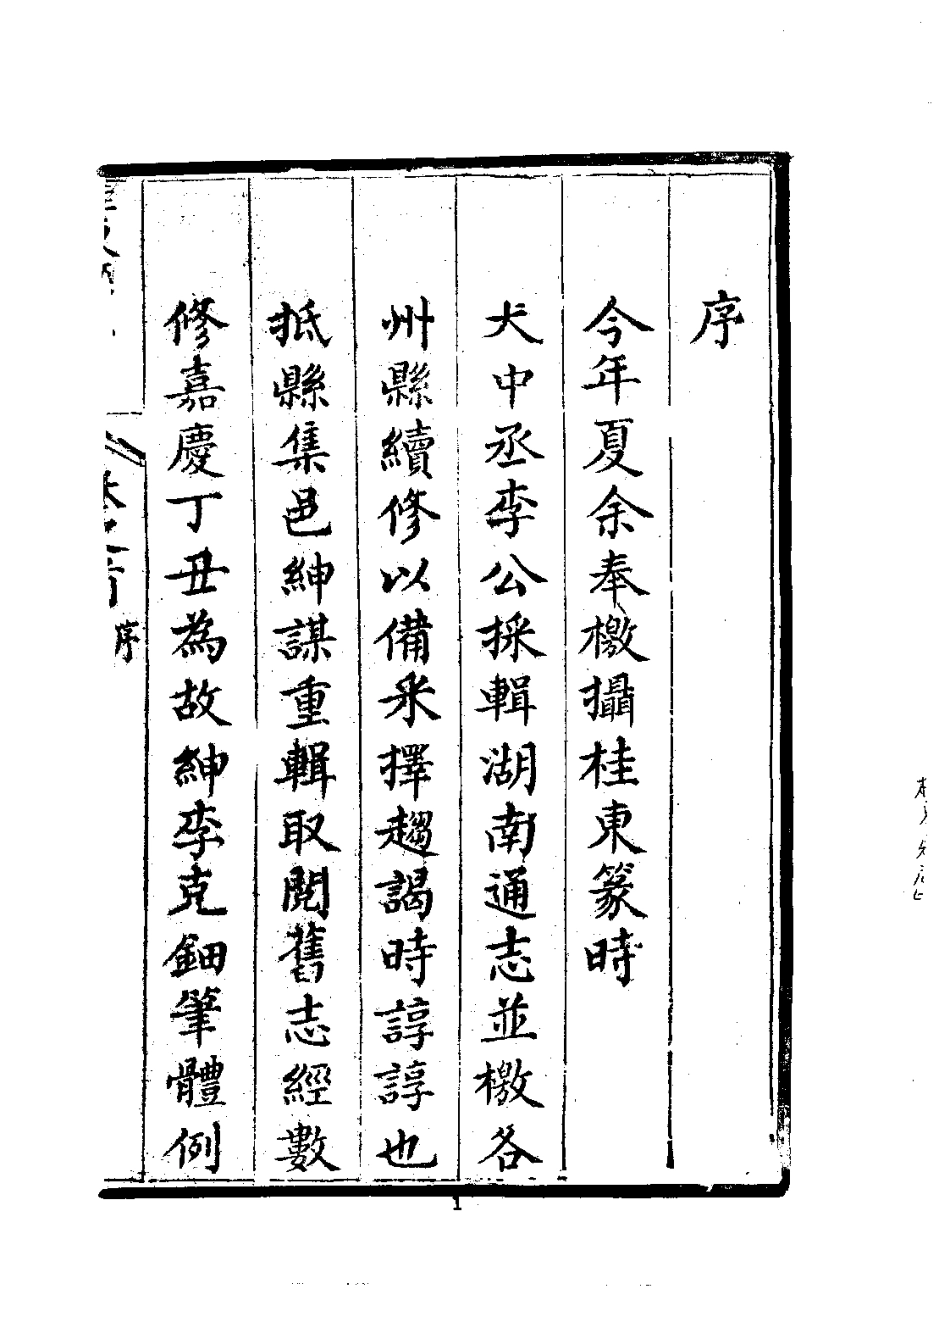 序
今年夏余奉檄攝桂東篆時
大中丞李公採輯湖南通志並檄各
州縣續修以備采擇趨謁時諄諄也
抵縣集邑紳謀重輯取閱舊志經數
修嘉慶丁丑為故紳李克鈿筆體例
卷之首
序
1